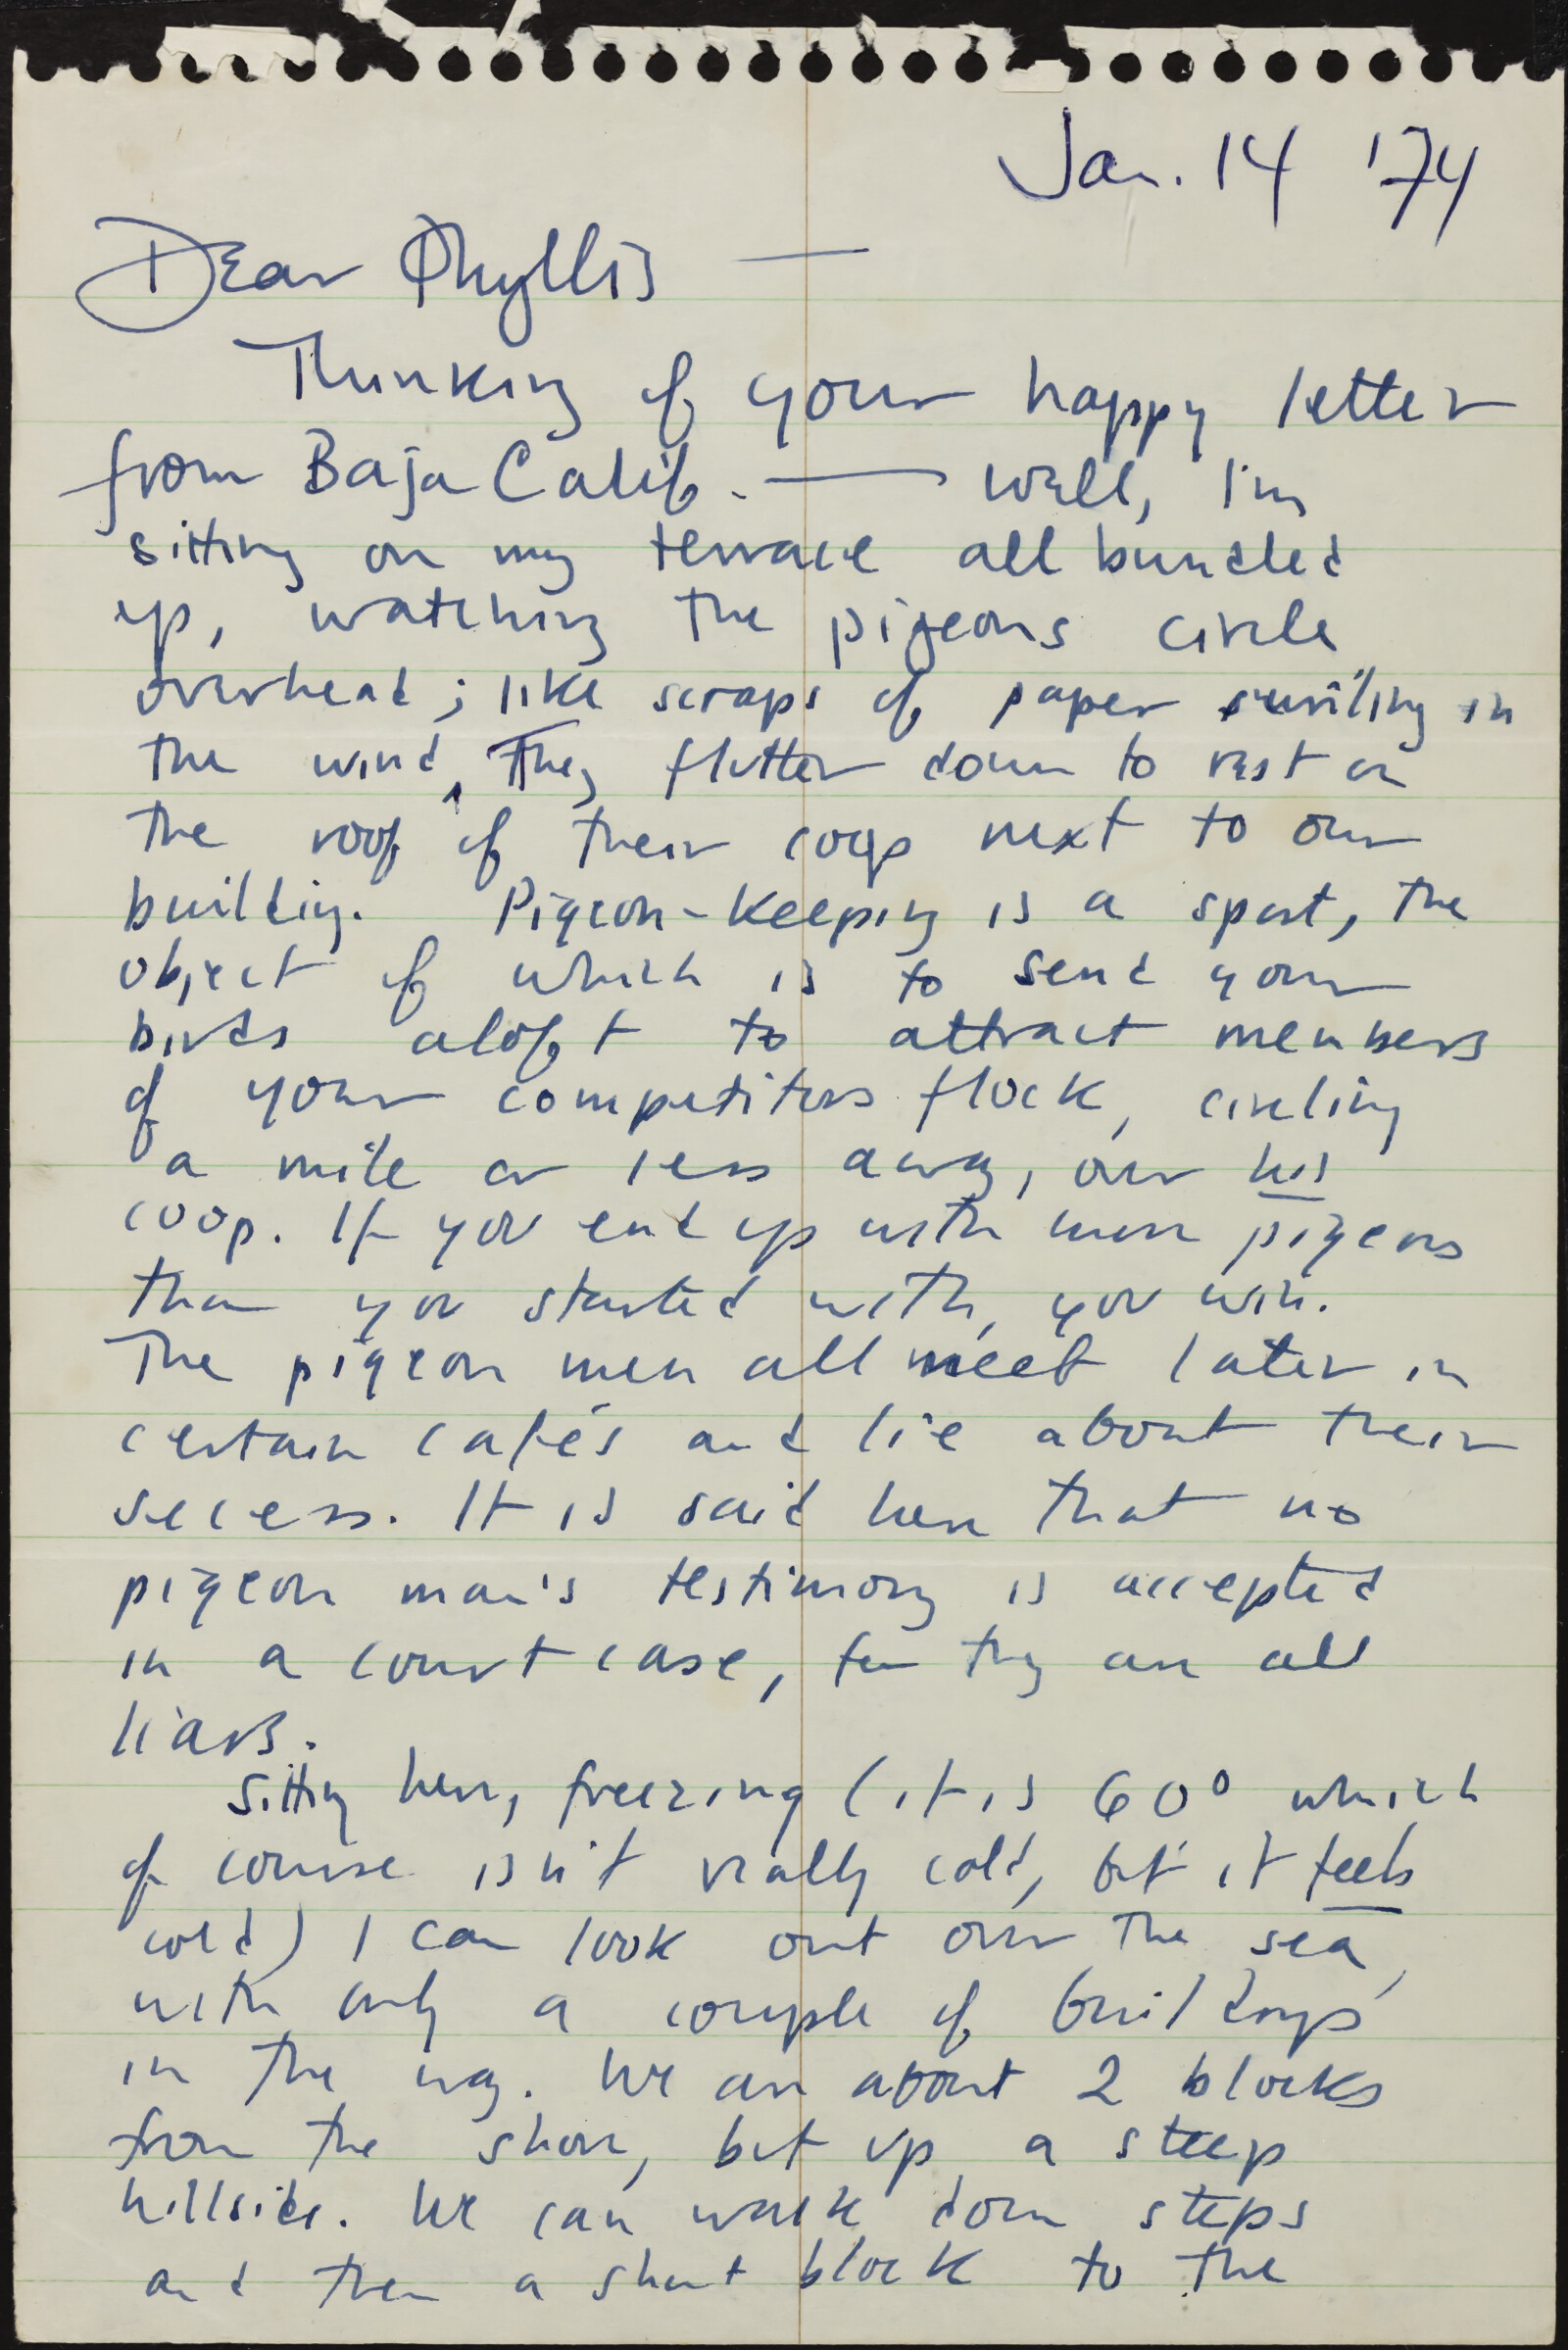 Jan. 14 '74
Dear Phyllis —
Thinking of your happy letter
from Baja Calif. — well, I'm
sitting on my terrace all bundled
up, watching the pigeons circle
overhead; like scraps of paper swirling in
the wind, They flutter down to rest on
the roof of their coop next to our
building. Pigeon-keeping is a sport, the
object of which is to send your
birds aloft to attract members
of your competitors flock, circling
a mile or less away, over his
coop. If you end up with more pigeons
than you started with, you win.
The pigeon men all meet later in
certain cafés and lie about their
secess. It is said here that no
pigeon man's testimony is accepted
in a court case, for they are all
liars.
Sitting here, freezing (it is 60° which
of course isn't really cold, but it feels
cold) I can look out over the sea,
with only a couple of buildings
in the way. We are about 2 blocks
from the shore, but up a steep
hillside. We can walk down steps
and then a short block to the